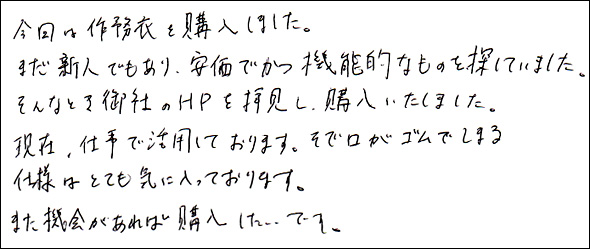 今回は作務衣を購入しました。
まだ新人でもあり、安価でかつ機能的なものを探していました。
そんなとき御社のHPを拝見し、購入いたしました。
現在、仕事で活用しております。そで口がゴムでしまる
仕様はとても気に入っております。
また機会があれば購入したいです。